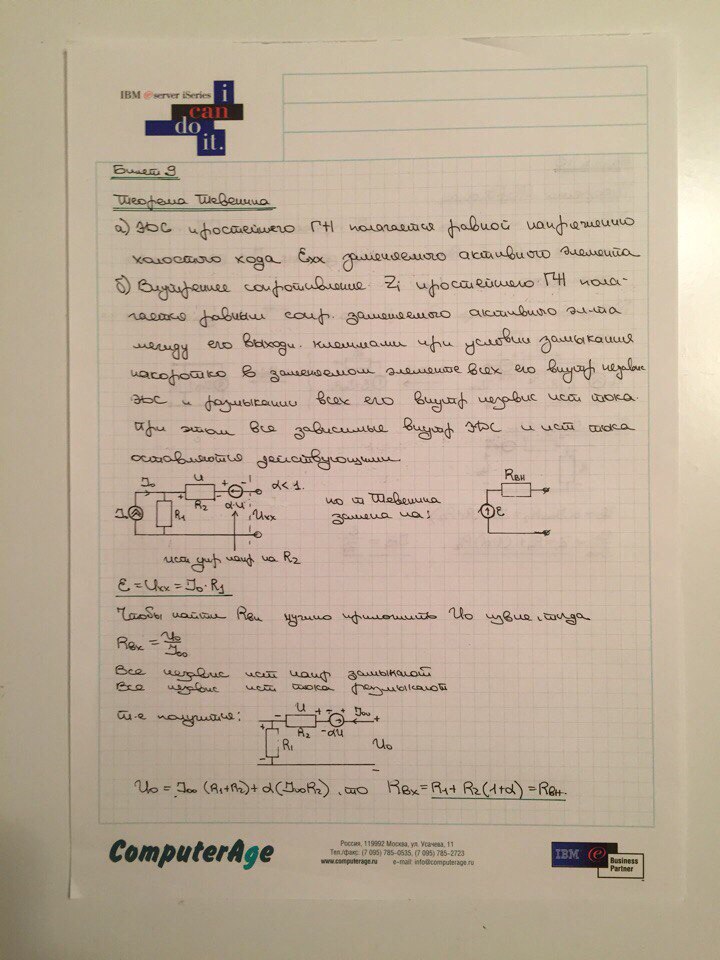 IBM e server iSeries
i
can
do
it.
Билет 9
Теорема Тевенина
а) ЭДС простейшего ГН полагается равной напряжению
холостого хода Exx заменяемого активного элемента
б) Внутреннее сопротивление Zi простейшего ГН пола-
гается равным сопр. заменяемого активного эл-та
между его выходн. клеммами при условии замыкания
накоротко в заменяемом элементе всех его внутр независ
ЭДС и размыкании всех его внутр независ ист тока.
При этом все зависимые внутр ЭДС и ист тока
оставляются действующими.
J₀ + U - + - α<1.
J₀ R₁ R₂ αU Uxx
по т Тевенина
замена на:
Rвн
E
ист упр напр на R₂
E = Uxx = J₀·R₁
Чтобы найти Rвн нужно приложить U₀ извне, тогда
Rвх = U₀/J₀₀
Все независ ист напр замыкают
Все независ ист тока размыкают
т-е получится:
+ - U + - + J₀₀ +
R₁ R₂ -αU U₀
U₀ = J₀₀ (R₁+R₂) + α(J₀₀R₂), то Rвх = R₁ + R₂(1+α) = Rвн.
ComputerAge
Россия, 119992 Москва, ул. Усачева, 11
Тел./факс: (7 095) 785-0535, (7 095) 785-2723
www.computerage.ru e-mail: info@computerage.ru
IBM e Business
Partner